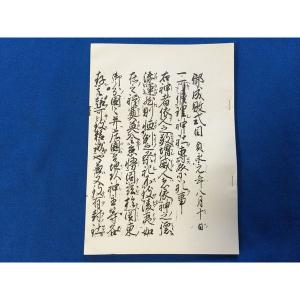 御成敗式目 貞永元年八月十日
一可修理神社専祭祀事
右神者依人之敬増威人者依神之徳
添運然則恒例之祭祀不致陵夷如
在之禮奠莫令怠慢因茲於関東
御分國々并庄園者地頭神主等各
存其趣可致精誠也兼又至有封社